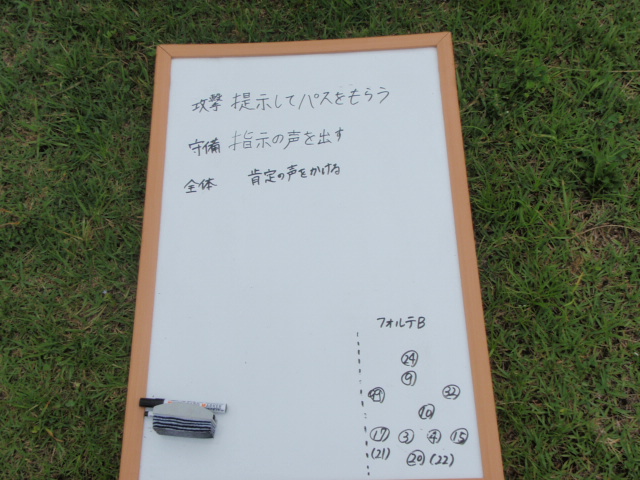 攻撃 提示してパスをもらう
守備 指示の声を出す
全体 肯定の声をかける
フォルテB
24
9
99 22
10
17 3 4 15
(21) 20 (22)